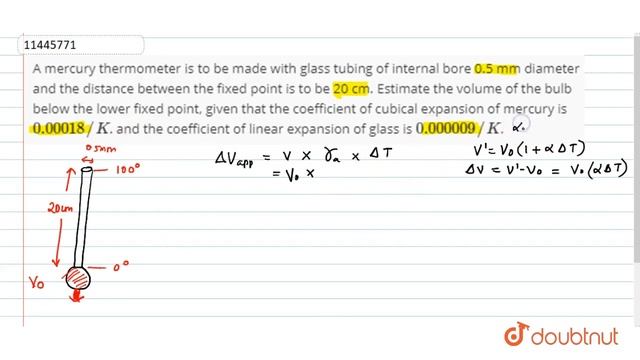 11445771
A mercury thermometer is to be made with glass tubing of internal bore 0.5 mm diameter
and the distance between the fixed point is to be 20 cm. Estimate the volume of the bulb
below the lower fixed point, given that the coefficient of cubical expansion of mercury is
0.00018/K. and the coefficient of linear expansion of glass is 0.000009/K. α
0.5mm
100°
20cm
0°
V₀
ΔV_app = V × γ_a × ΔT
= V₀ ×
V' = V₀(1 + αΔT)
ΔV = V' - V₀ = V₀(αΔT)
doubtnut